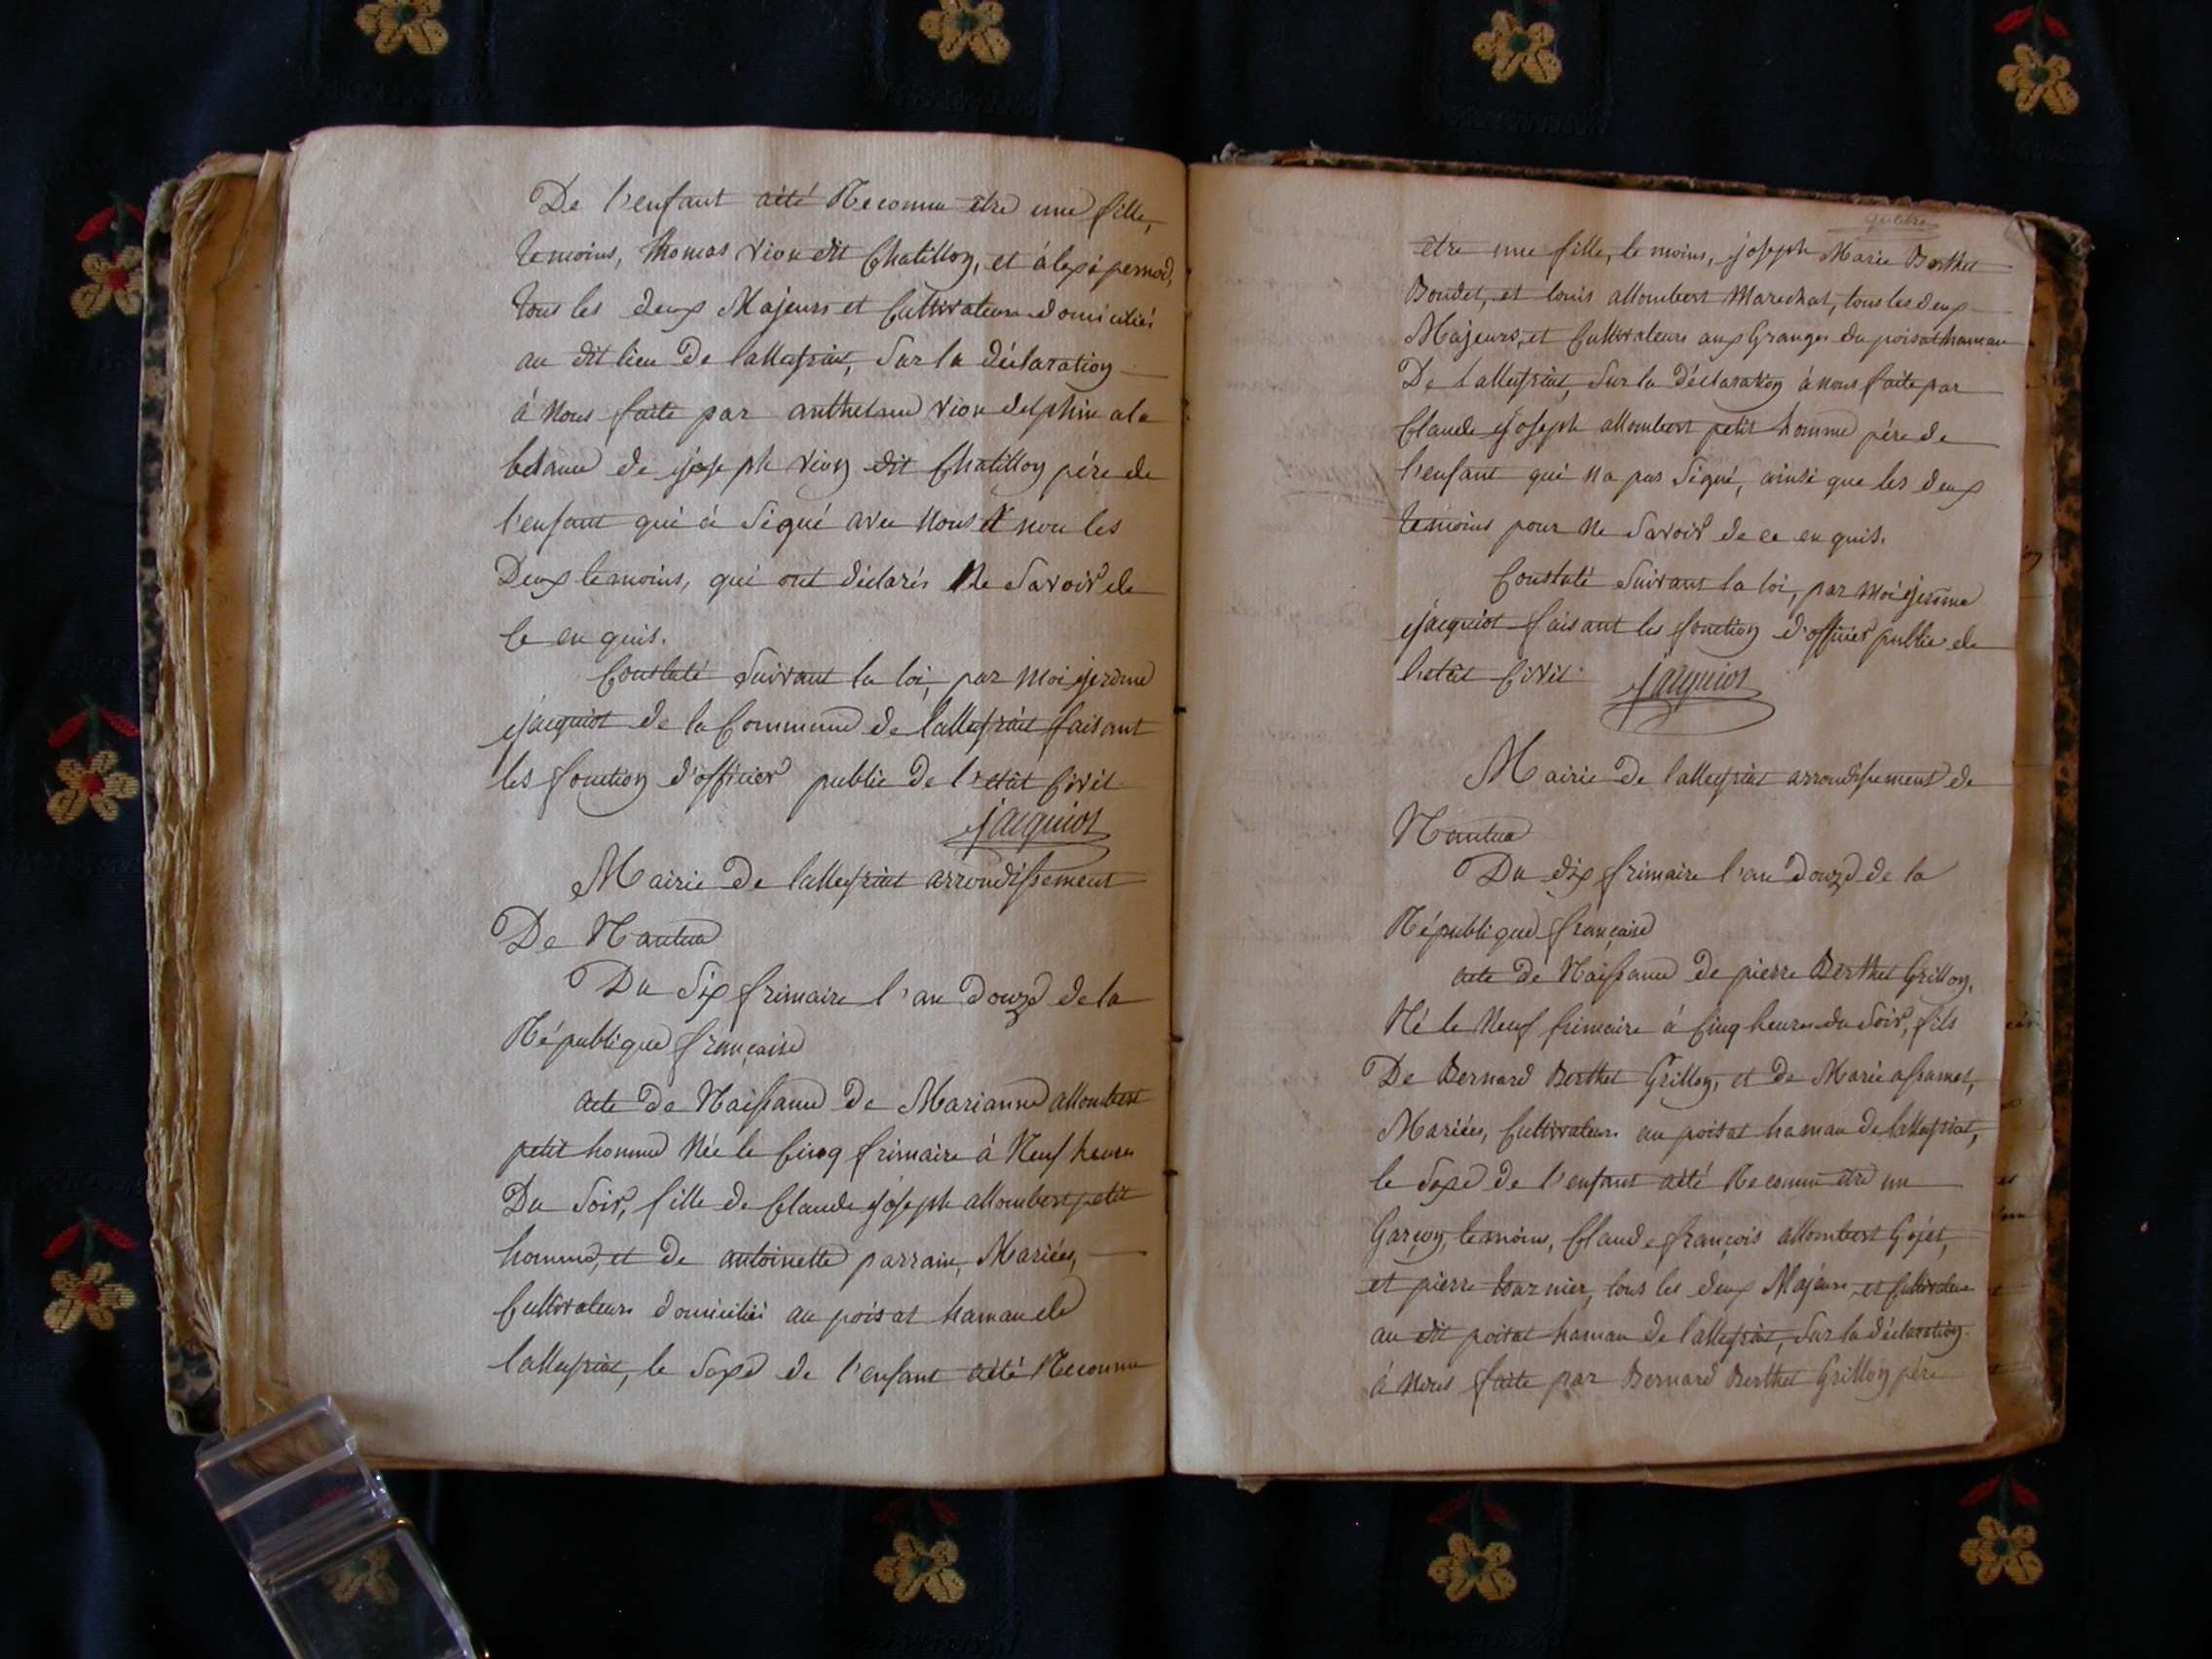 De l'enfant aété Reconnu être une fille,
temoins, thomas vion dit Chatillon, et aléxi pernod,
tous les deux Majeurs et Cultivateurs domiciliés
au dit lieu De lalleyriat, Sur la déclaration
à Nous faite par anthelme vion delphin ala
de joseph vion dit Chatillon pére de
l'enfant qui à Signé avec Nous et non les
Deux temoins, qui ont déclarés Ne Savoir de
Ce en quis.
Constaté Suivant la loi, par Moi jerome
jacquiot de la Commune de lalleyriat faisant
les fonction d'officier public de l'etât Civil
jacquiot
Mairie De lalleyriat arrondissement
De Nantua
Du Six frimaire l'an Douze de la
République française
acte De Naissance De Marianne allombert
petit homme Née le Cinq frimaire à Neuf heures
Du Soir, fille de Claude joseph allombert petit
homme, et de antoinette parrain, Mariées,
Cultivateurs domiciliés au poisat hamau de
lalleyriat, le Sexe de l'enfant aété Reconnu
quatre
être une fille, temoins, joseph Marie Berthet
Bondet, et louis allombert Marechat, tous les deux
Majeurs, et Cultivateurs aux Granges du poisat hamau
De lalleyriat, Sur la déclaration à nous faite par
Claude joseph allombert petit homme pére de
l'enfant qui na pas Signé, ainsi que les deux
temoins pour Ne Savoir de ce en quis.
Constaté Suivant la loi, par Moi jerome
jacquiot faisant les fonction d'officier public de
l'etât Civil jacquiot
Mairie De lalleyriat arrondissement de
Nantua
Du dix frimaire l'an Douze de la
République française
acte De Naissance De pierre Berthet Grillon,
Né le Neuf frimaire à Cinq heures du Soir, fils
De Bernard Berthet Grillon, et de Marie assamet,
Mariées, Cultivateurs au poisat hamau de lalleyriat,
le Sexe De l'enfant aété Reconnu être un
Garçon, temoins, Claude françois allombert Gojet,
et pierre tournier, tous les deux Majeurs, et Cultivateurs
au dit poisat hamau de lalleyriat, Sur la déclaration
à Nous faite par Bernard Berthet Grillon pére